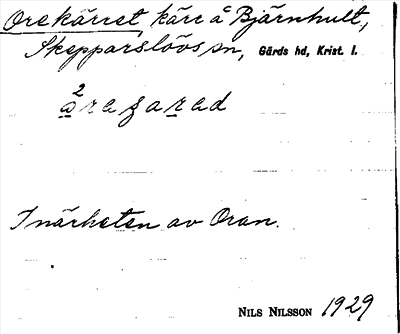 Orekärret, kärr å Bjärnhult,
Skepparslövs sn, Gärds hd, Krist. l.
I närheten av Oran.
NILS NILSSON 1929